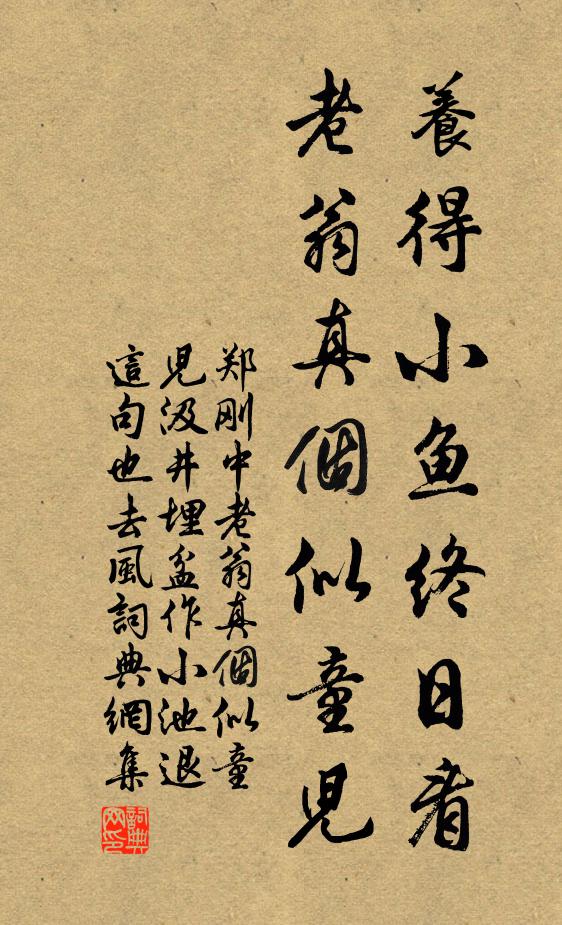 養得小鱼终日看
老翁真個似童児
郑刚中老翁真個似童
児汲井埋盆作小池退
這句也去風詞典網集
詞典
网印